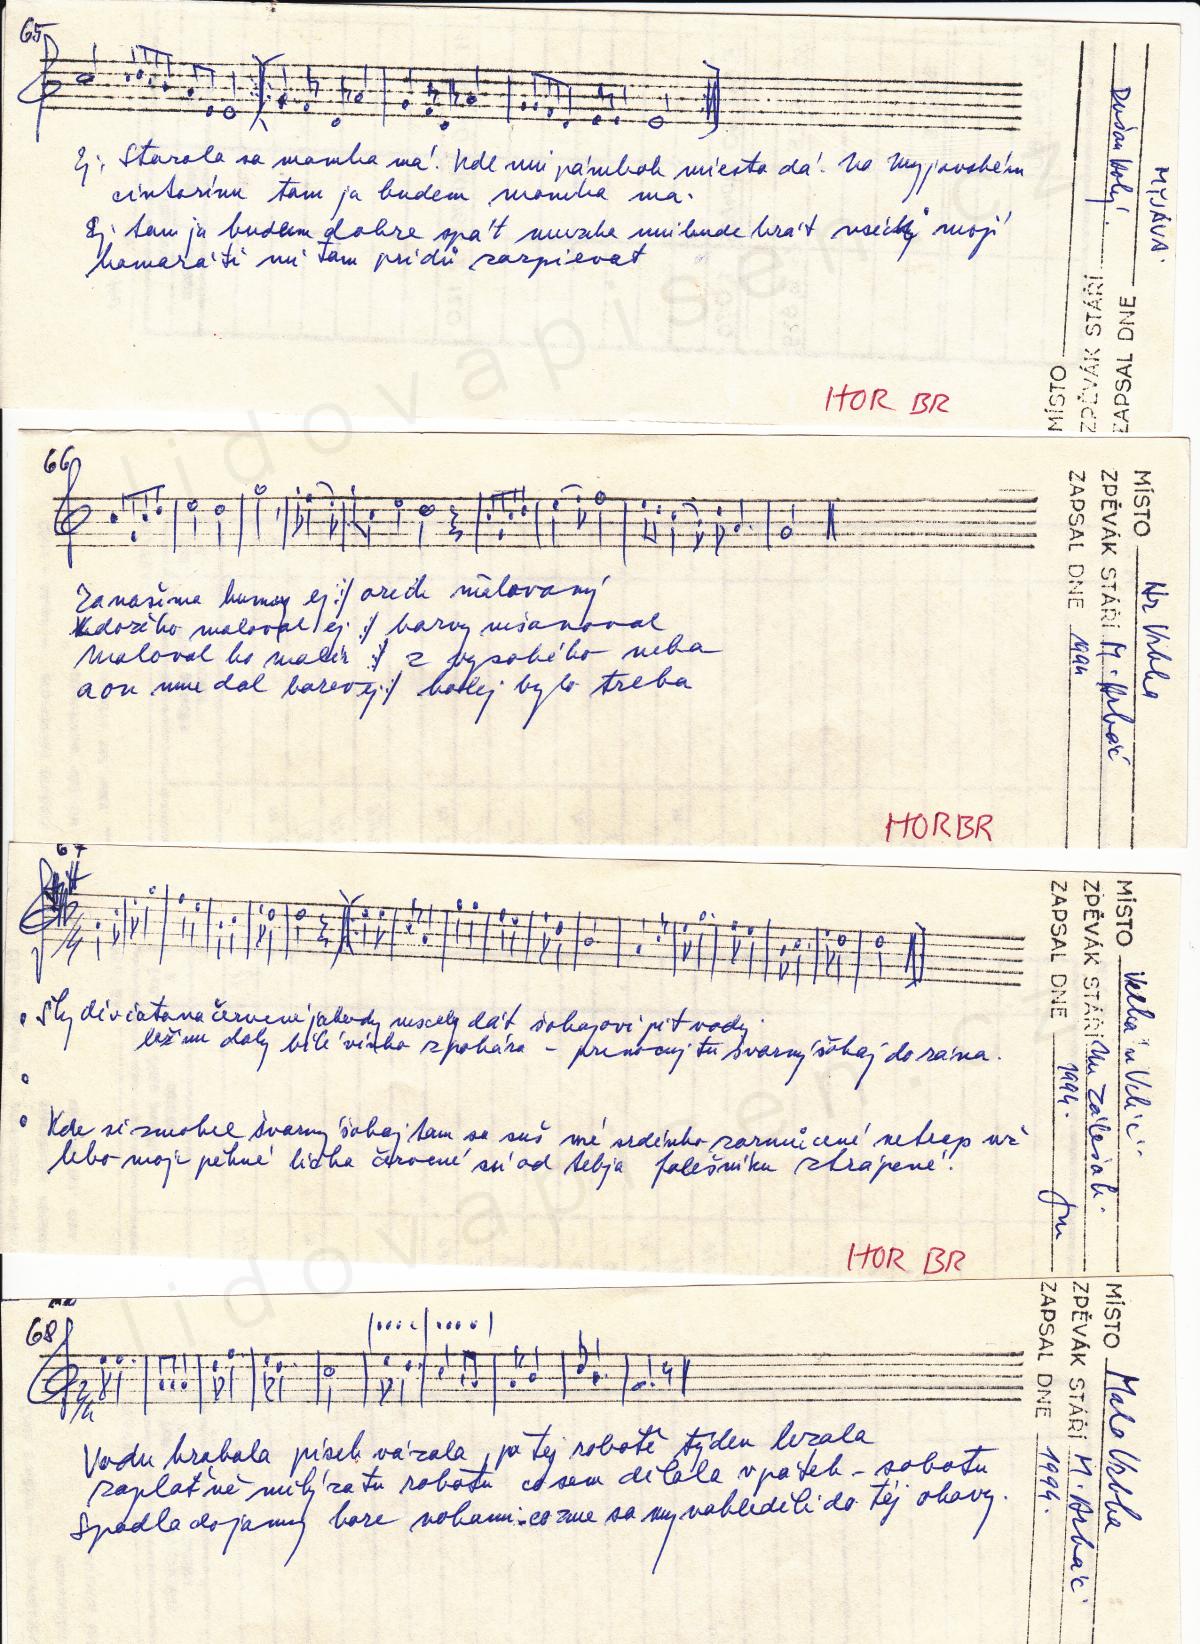 65
Ej. Starala sa mamka má. Kde mi pámbok miesto dá. Na Myjavském
cintoríně tam ja budem mamka ma.
Ej. tam ja budem dobre spát muzika mi bude hrát všecky moji
kamaráti mi tam pridú zazpievat
HOR BR
MYJÁVA.
Dušan Holý.
ZAPSAL DNE
ZPĚVÁK STÁŘÍ
MÍSTO
66
Za našima humny ej :/ orech malovaný
Kdožiho maloval ej :/ barvy nešanoval
Maloval ho malér :/ z vysokého neba
a on mne dal barev ej :/ kolej bylo treba
HORBR
MÍSTO Hr Vrbka
ZPĚVÁK STÁŘÍ M. Hrbáč
ZAPSAL DNE 1994
67
Šly divčata na červené jahody nescely dát šohajovi pit vody.
bílé vínko z pohára – prenocuj tu švarný šohaj do rána.
Kde si zmokel švarny šohaj tam sa suš mé srdénko zarmúcené netrap už
lebo moje pěkné líčka červené sú od tebja falešníku ztrápené.
HOR BR
MÍSTO Velká n Velič.
ZPĚVÁK STÁŘÍ Mr Zálešák.
ZAPSAL DNE 1994.
68
2/4
Vodu hrabala písek vázala, po tej robotě týden ležala
zaplať ně milý za tu robotu co sem dělala v pátek – sobotu
Spadla do jamy hore nohami co zme sa my nahleděli do téj ohavy.
MÍSTO Mala Vrbka
ZPĚVÁK STÁŘÍ M. Hrbáč
ZAPSAL DNE 1994.